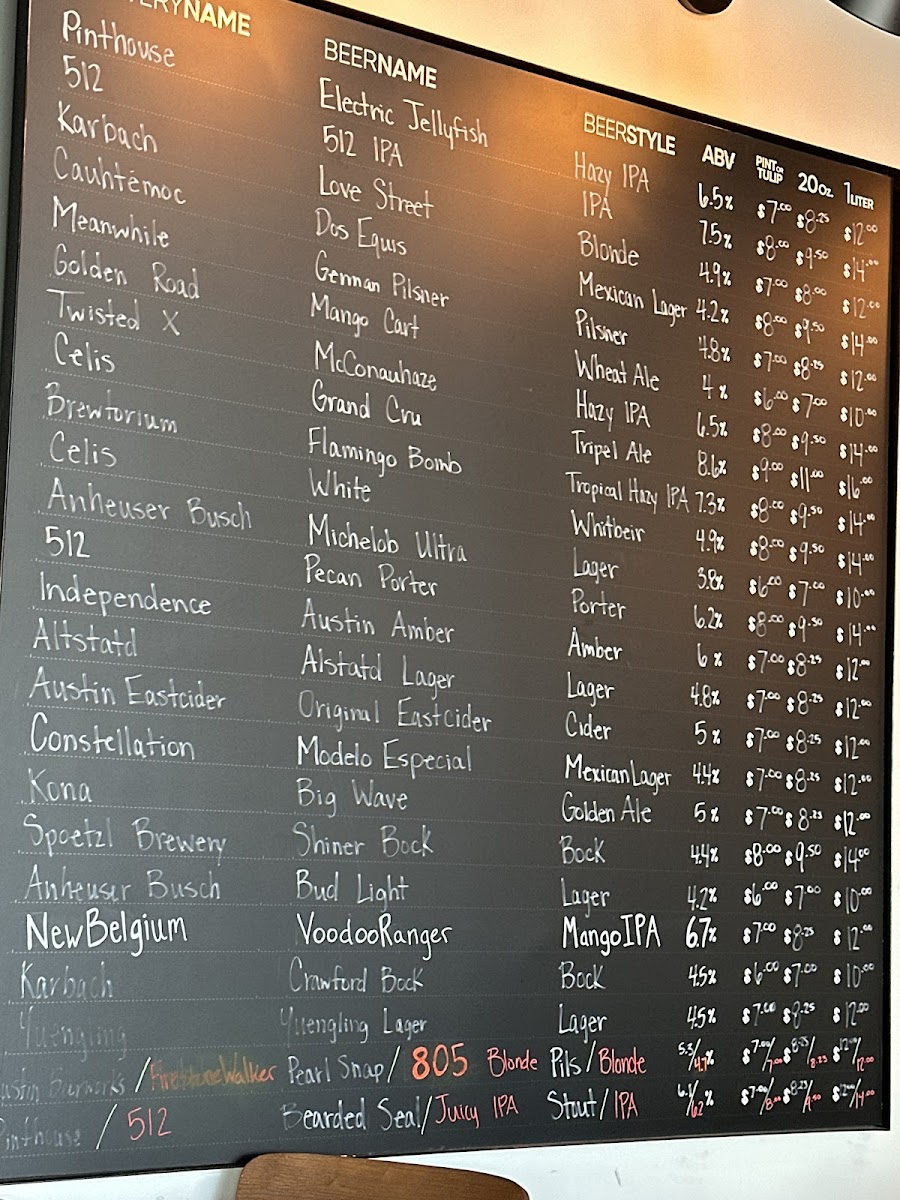 ERYNAME BEERNAME BEERSTYLE ABV PINT OR TULIP 20oz. 1LITER
Pinthouse Electric Jellyfish Hazy IPA 6.5% $7.00 $8.25 $12.00
512 512 IPA IPA 7.5% $8.00 $9.50 $14.00
Karbach Love Street Blonde 4.9% $7.00 $8.00 $12.00
Cauhtémoc Dos Equis Mexican Lager 4.2% $8.00 $9.50 $14.00
Meanwhile German Pilsner Pilsner 4.8% $7.00 $8.25 $12.00
Golden Road Mango Cart Wheat Ale 4% $6.00 $7.00 $10.00
Twisted X McConauhaze Hazy IPA 6.5% $8.00 $9.50 $14.00
Celis Grand Cru Tripel Ale 8.6% $9.00 $11.00 $16.00
Brewtorium Flamingo Bomb Tropical Hazy IPA 7.3% $8.00 $9.50 $14.00
Celis White Whitbeir 4.9% $8.00 $9.50 $14.00
Anheuser Busch Michelob Ultra Lager 3.8% $6.00 $7.00 $10.00
512 Pecan Porter Porter 6.2% $8.00 $9.50 $14.00
Independence Austin Amber Amber 6% $7.00 $8.25 $12.00
Altstatd Alstatd Lager Lager 4.8% $7.00 $8.25 $12.00
Austin Eastcider Original Eastcider Cider 5% $7.00 $8.25 $12.00
Constellation Modelo Especial Mexican Lager 4.4% $7.00 $8.25 $12.00
Kona Big Wave Golden Ale 5% $7.00 $8.25 $12.00
Spoetzl Brewery Shiner Bock Bock 4.4% $8.00 $9.50 $14.00
Anheuser Busch Bud Light Lager 4.2% $6.00 $7.00 $10.00
New Belgium VoodooRanger Mango IPA 6.7% $7.00 $8.25 $12.00
Karbach Crawford Bock Bock 4.5% $6.00 $7.00 $10.00
Yuengling Yuengling Lager Lager 4.5% $7.00 $8.25 $12.00
ustin Beerworks / FirestoneWalker Pearl Snap / 805 Blonde Pils / Blonde 5.3/4.7% $7.00/7.00 $8.25/8.25 $12.00/12.00
Pinthouse / 512 Bearded Seal / Juicy IPA Stout / IPA 6.1/6.2% $7.00/8.00 $8.25/9.50 $12.00/14.00